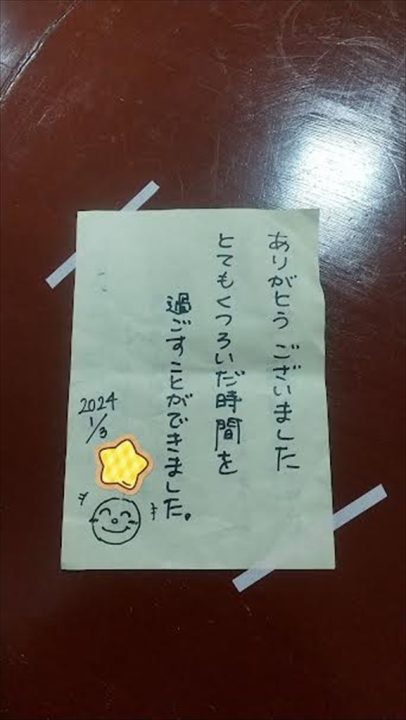 ありがとうございました
とてもくつろいだ時間を
過ごすことができました。
2024
1/3